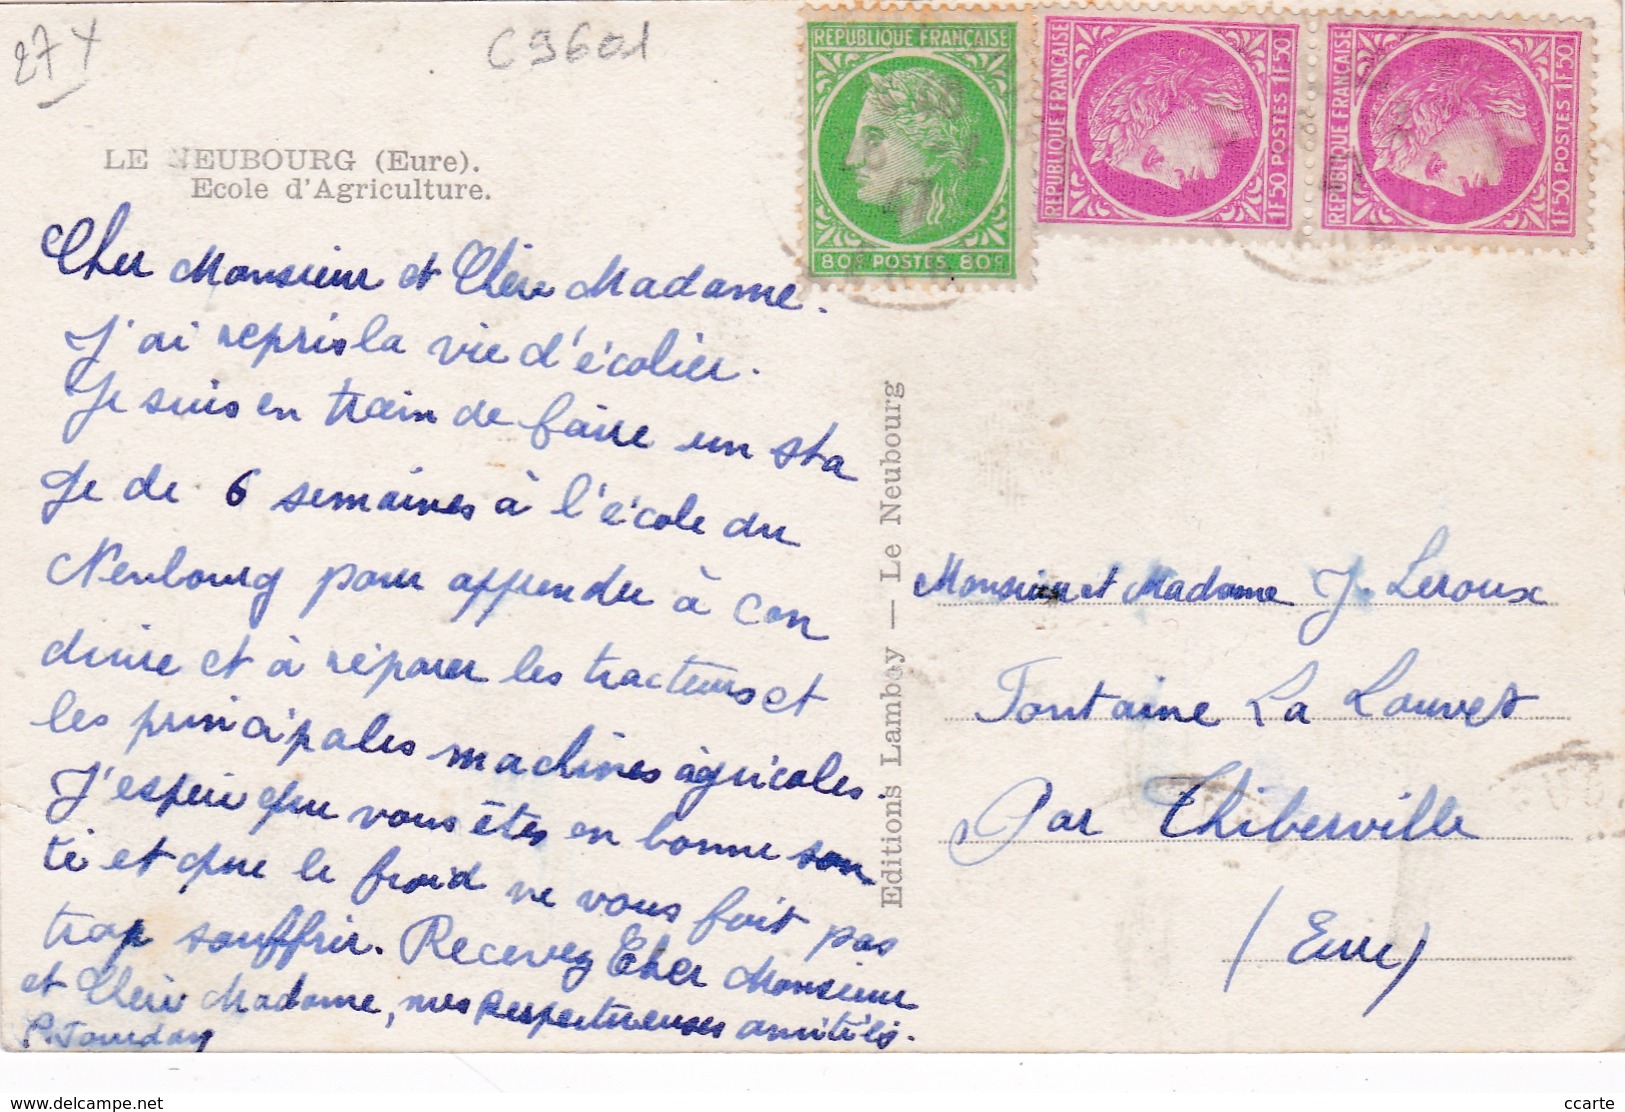 27 Y
C9601
REPUBLIQUE FRANÇAISE
80c POSTES 80c
REPUBLIQUE FRANÇAISE
1F50 POSTES 1F50
REPUBLIQUE FRANÇAISE
1F50 POSTES 1F50
LE NEUBOURG (Eure).
Ecole d'Agriculture.
Cher Monsieur et Chère Madame.
J'ai repris la vie d'écolier.
Je suis en train de faire un sta
ge de 6 semaines à l'école du
Neubourg pour apprendre à con
duire et à réparer les tracteurs et
les principales machines agricoles.
J'espère que vous êtes en bonne san
té et que le froid ne vous fait pas
trop souffrir. Recevez Cher Monsieur
et Chère Madame, mes respectueuses amitiés.
P. Jourdan
Editions Lamboy — Le Neubourg
Monsieur et Madame J. Leroux
Fontaine La Louvet
Par Thiberville
(Eure)
www.delcampe.net
ccarte